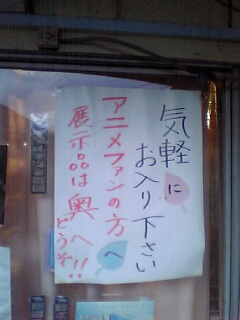 気軽に
お入り下さい
アニメファンの方へ
展示品は奥へ
どうぞ!!